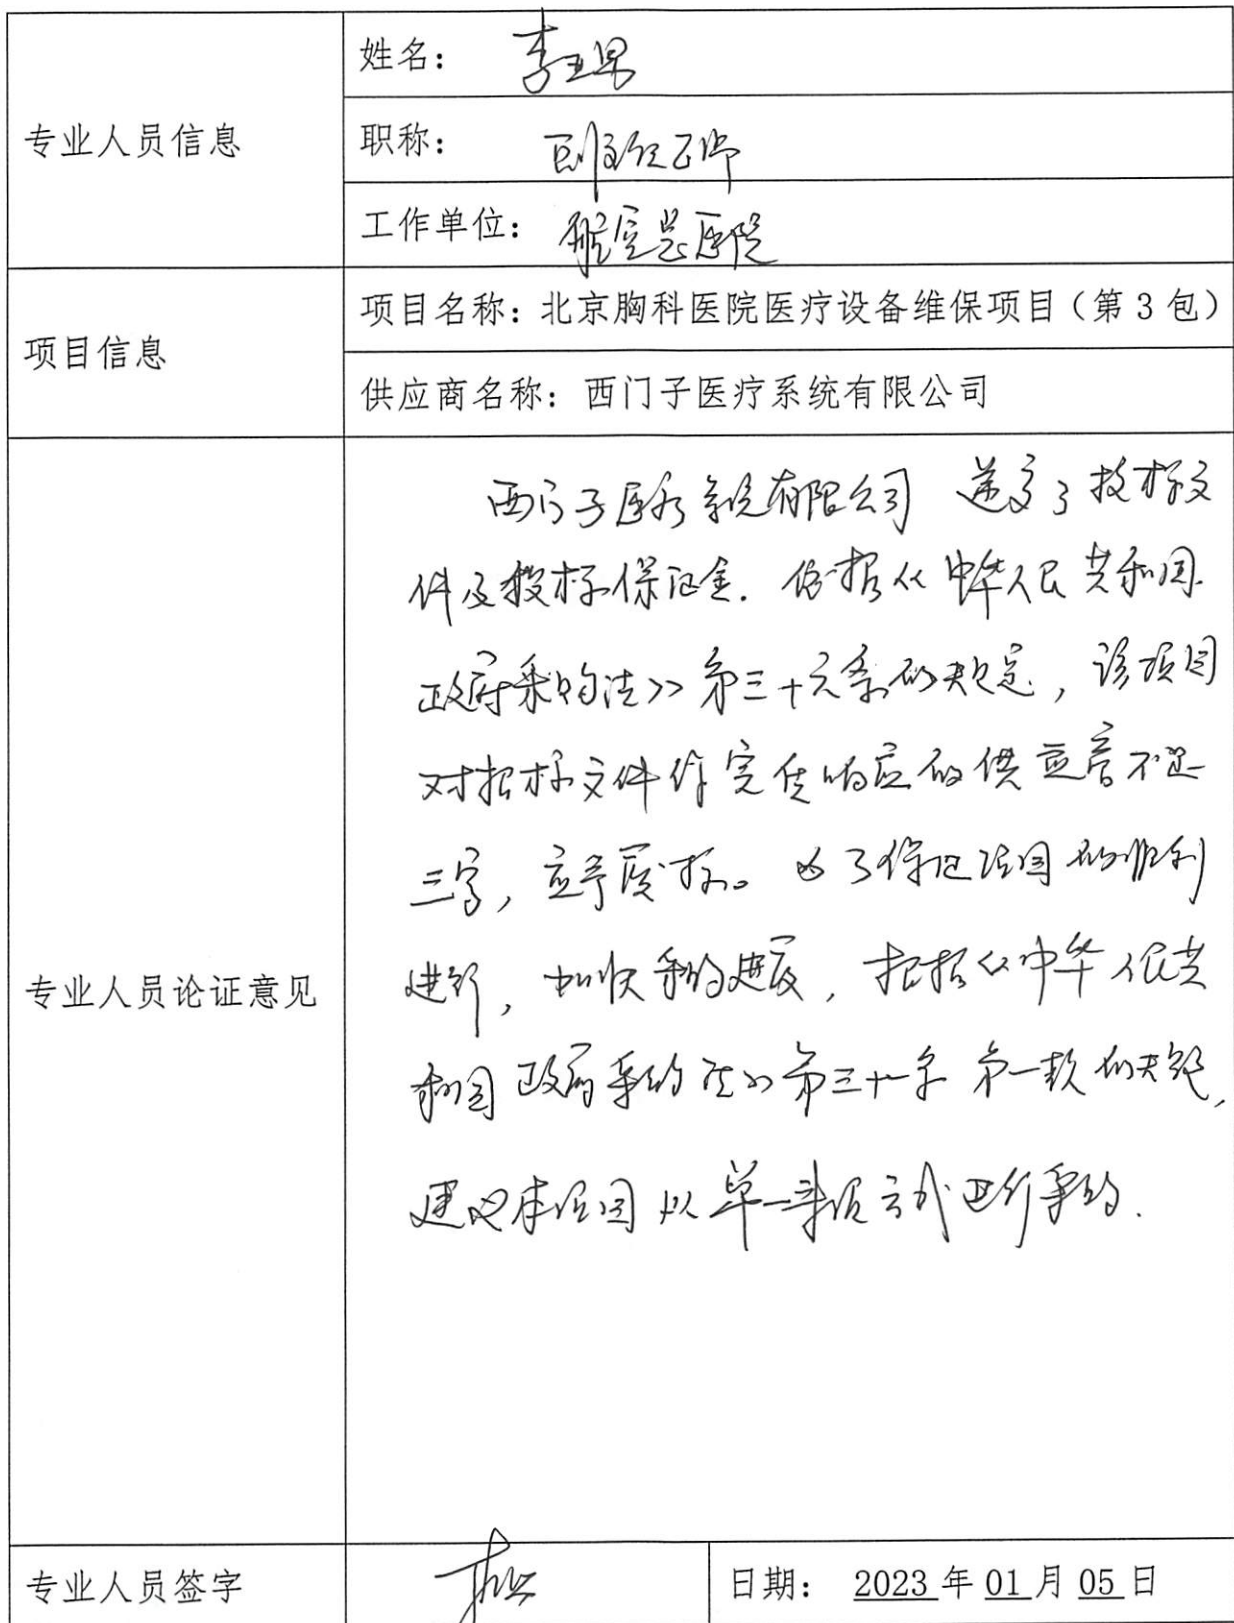 姓名：李
专业人员信息
职称：副主任医师
工作单位：航空总医院
项目信息
项目名称：北京胸科医院医疗设备维保项目（第 3 包）
供应商名称：西门子医疗系统有限公司
专业人员论证意见
西门子医疗系统有限公司 递交了投标文
件及投标保证金. 依据《中华人民共和国
政府采购法》第三十六条的规定，该项目
对招标文件作完全响应的供应商不足
三家，应予废标。为了保证项目的顺利
进行，加快采购进展，根据《中华人民共
和国政府采购法》第三十一条 第一款的规定，
建议本项目以单一来源方式进行采购.
专业人员签字
日期： 2023 年 01 月 05 日